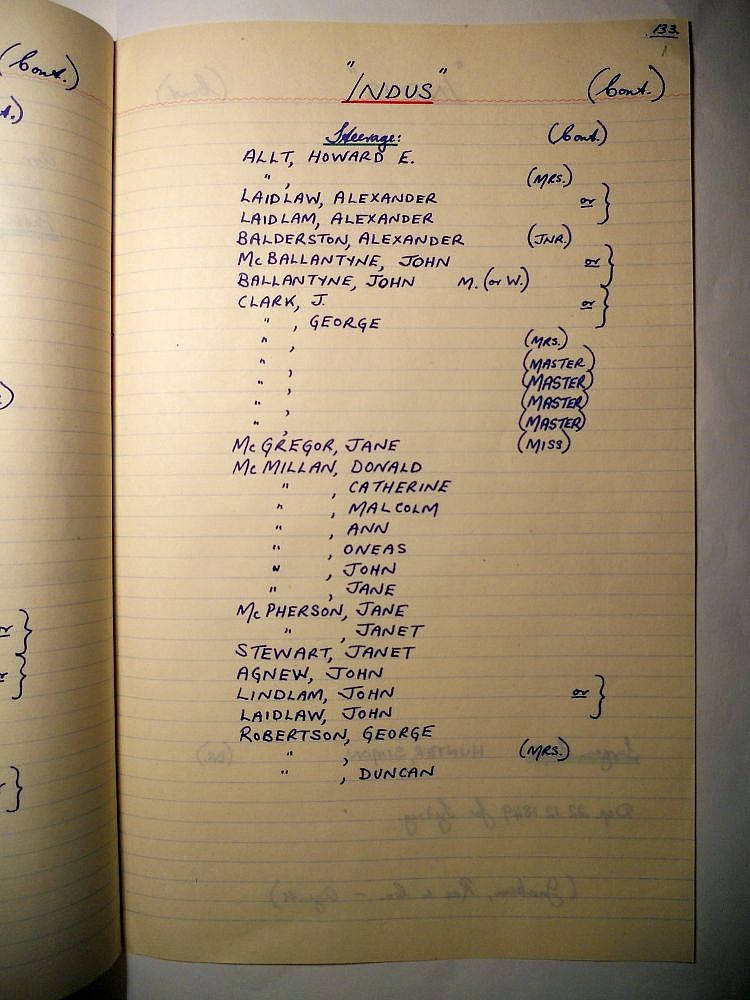 133.
"INDUS" (Cont.)
Steerage: (Cont.)
ALLT, HOWARD E.
" , (MRS.)
LAIDLAW, ALEXANDER or }
LAIDLAM, ALEXANDER
BALDERSTON, ALEXANDER (JNR.)
McBALLANTYNE, JOHN or }
BALLANTYNE, JOHN M. (or W.)
CLARK, J. or }
" , GEORGE
" , (MRS.)
" , (MASTER)
" , (MASTER)
" , (MASTER)
" , (MASTER)
McGREGOR, JANE (MISS)
McMILLAN, DONALD
" , CATHERINE
" , MALCOLM
" , ANN
" , ONEAS
" , JOHN
" , JANE
McPHERSON, JANE
" , JANET
STEWART, JANET
AGNEW, JOHN
LINDLAM, JOHN or }
LAIDLAW, JOHN
ROBERTSON, GEORGE
" , (MRS.)
" , DUNCAN
(Cont.)
t.)
or }
or }
}